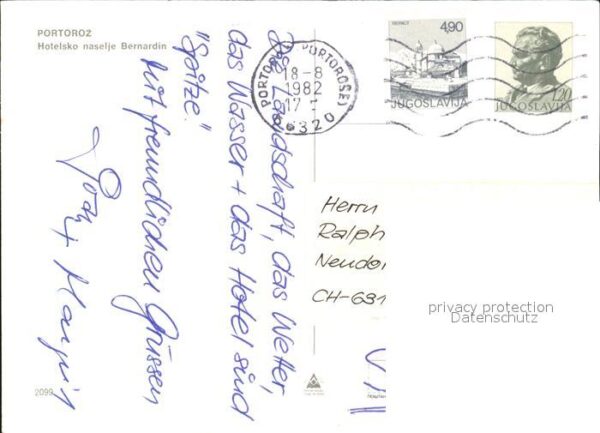 PORTOROŽ
Hotelsko naselje Bernardin
Die Landschaft, das Wetter,
das Wasser + das Hotel sind
"Spitze."
Mit freundlichen Grüssen
+ Margrit
2099
PORTOROŽ PORTOROSE
18-8
1982
17
66320
4,90
JUGOSLAVIJA
1,20
JUGOSLAVIJA
Herrn
Ralph
CH-691
privacy protection
Datenschutz